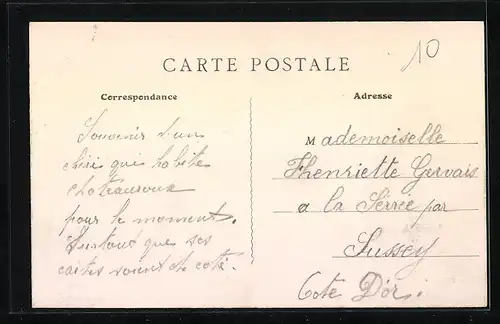 10
CARTE POSTALE
Correspondance
Adresse
Souvenir d'un
qui habite
chateauroux
pour le moment.
Surtout que ses
cartes soient de coté.
Mademoiselle
Henriette Gervais
a la Serrée par
Sussey
Cote D'or.